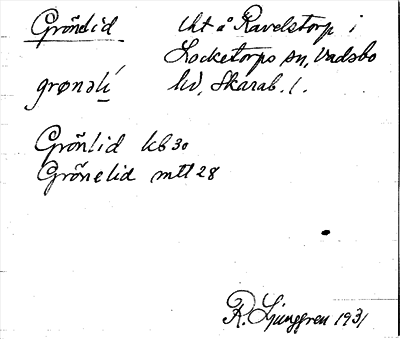 Grönelid tht å Ravelstorp i
Locketorps sn, Vadsbo
grønəlí hd, Skarab. l.
Grönlid kb 30
Grönelid mtl 28
R. Ljunggren 1931